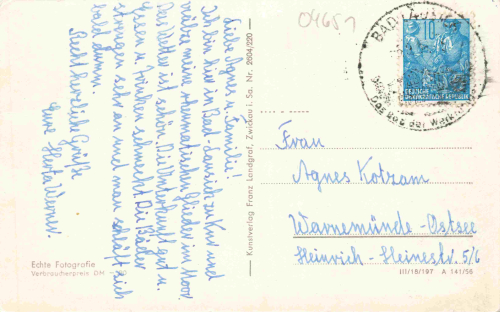 04651
Liebe Agnes u. Familie!
Ich bin hier in Bad-Lausick zur Kur und
rühre meine rheumatischen Glieder in Moor.
Das Wetter ist schön. Die Unterkunft gut u.
Essen u. trinken schmeckt. Die Bäder
strengen sehr an und man schläft sich
bald dumm.
Recht herzliche Grüße
Eure Herta Werner.
Echte Fotografie
Verbraucherpreis DM
— Kunstverlag Franz Landgraf, Zwickau i. Sa. Nr. 2604/220 —
BAD LAUSICK
10
DEUTSCHE
DEMOKRATISCHE REPUBLIK
Das Bad der Werktätigen
Frau
Agnes Kotzam
Warnemünde-Ostsee
Heinrich-Heinestr. 5/6
III/18/197 A 141/56